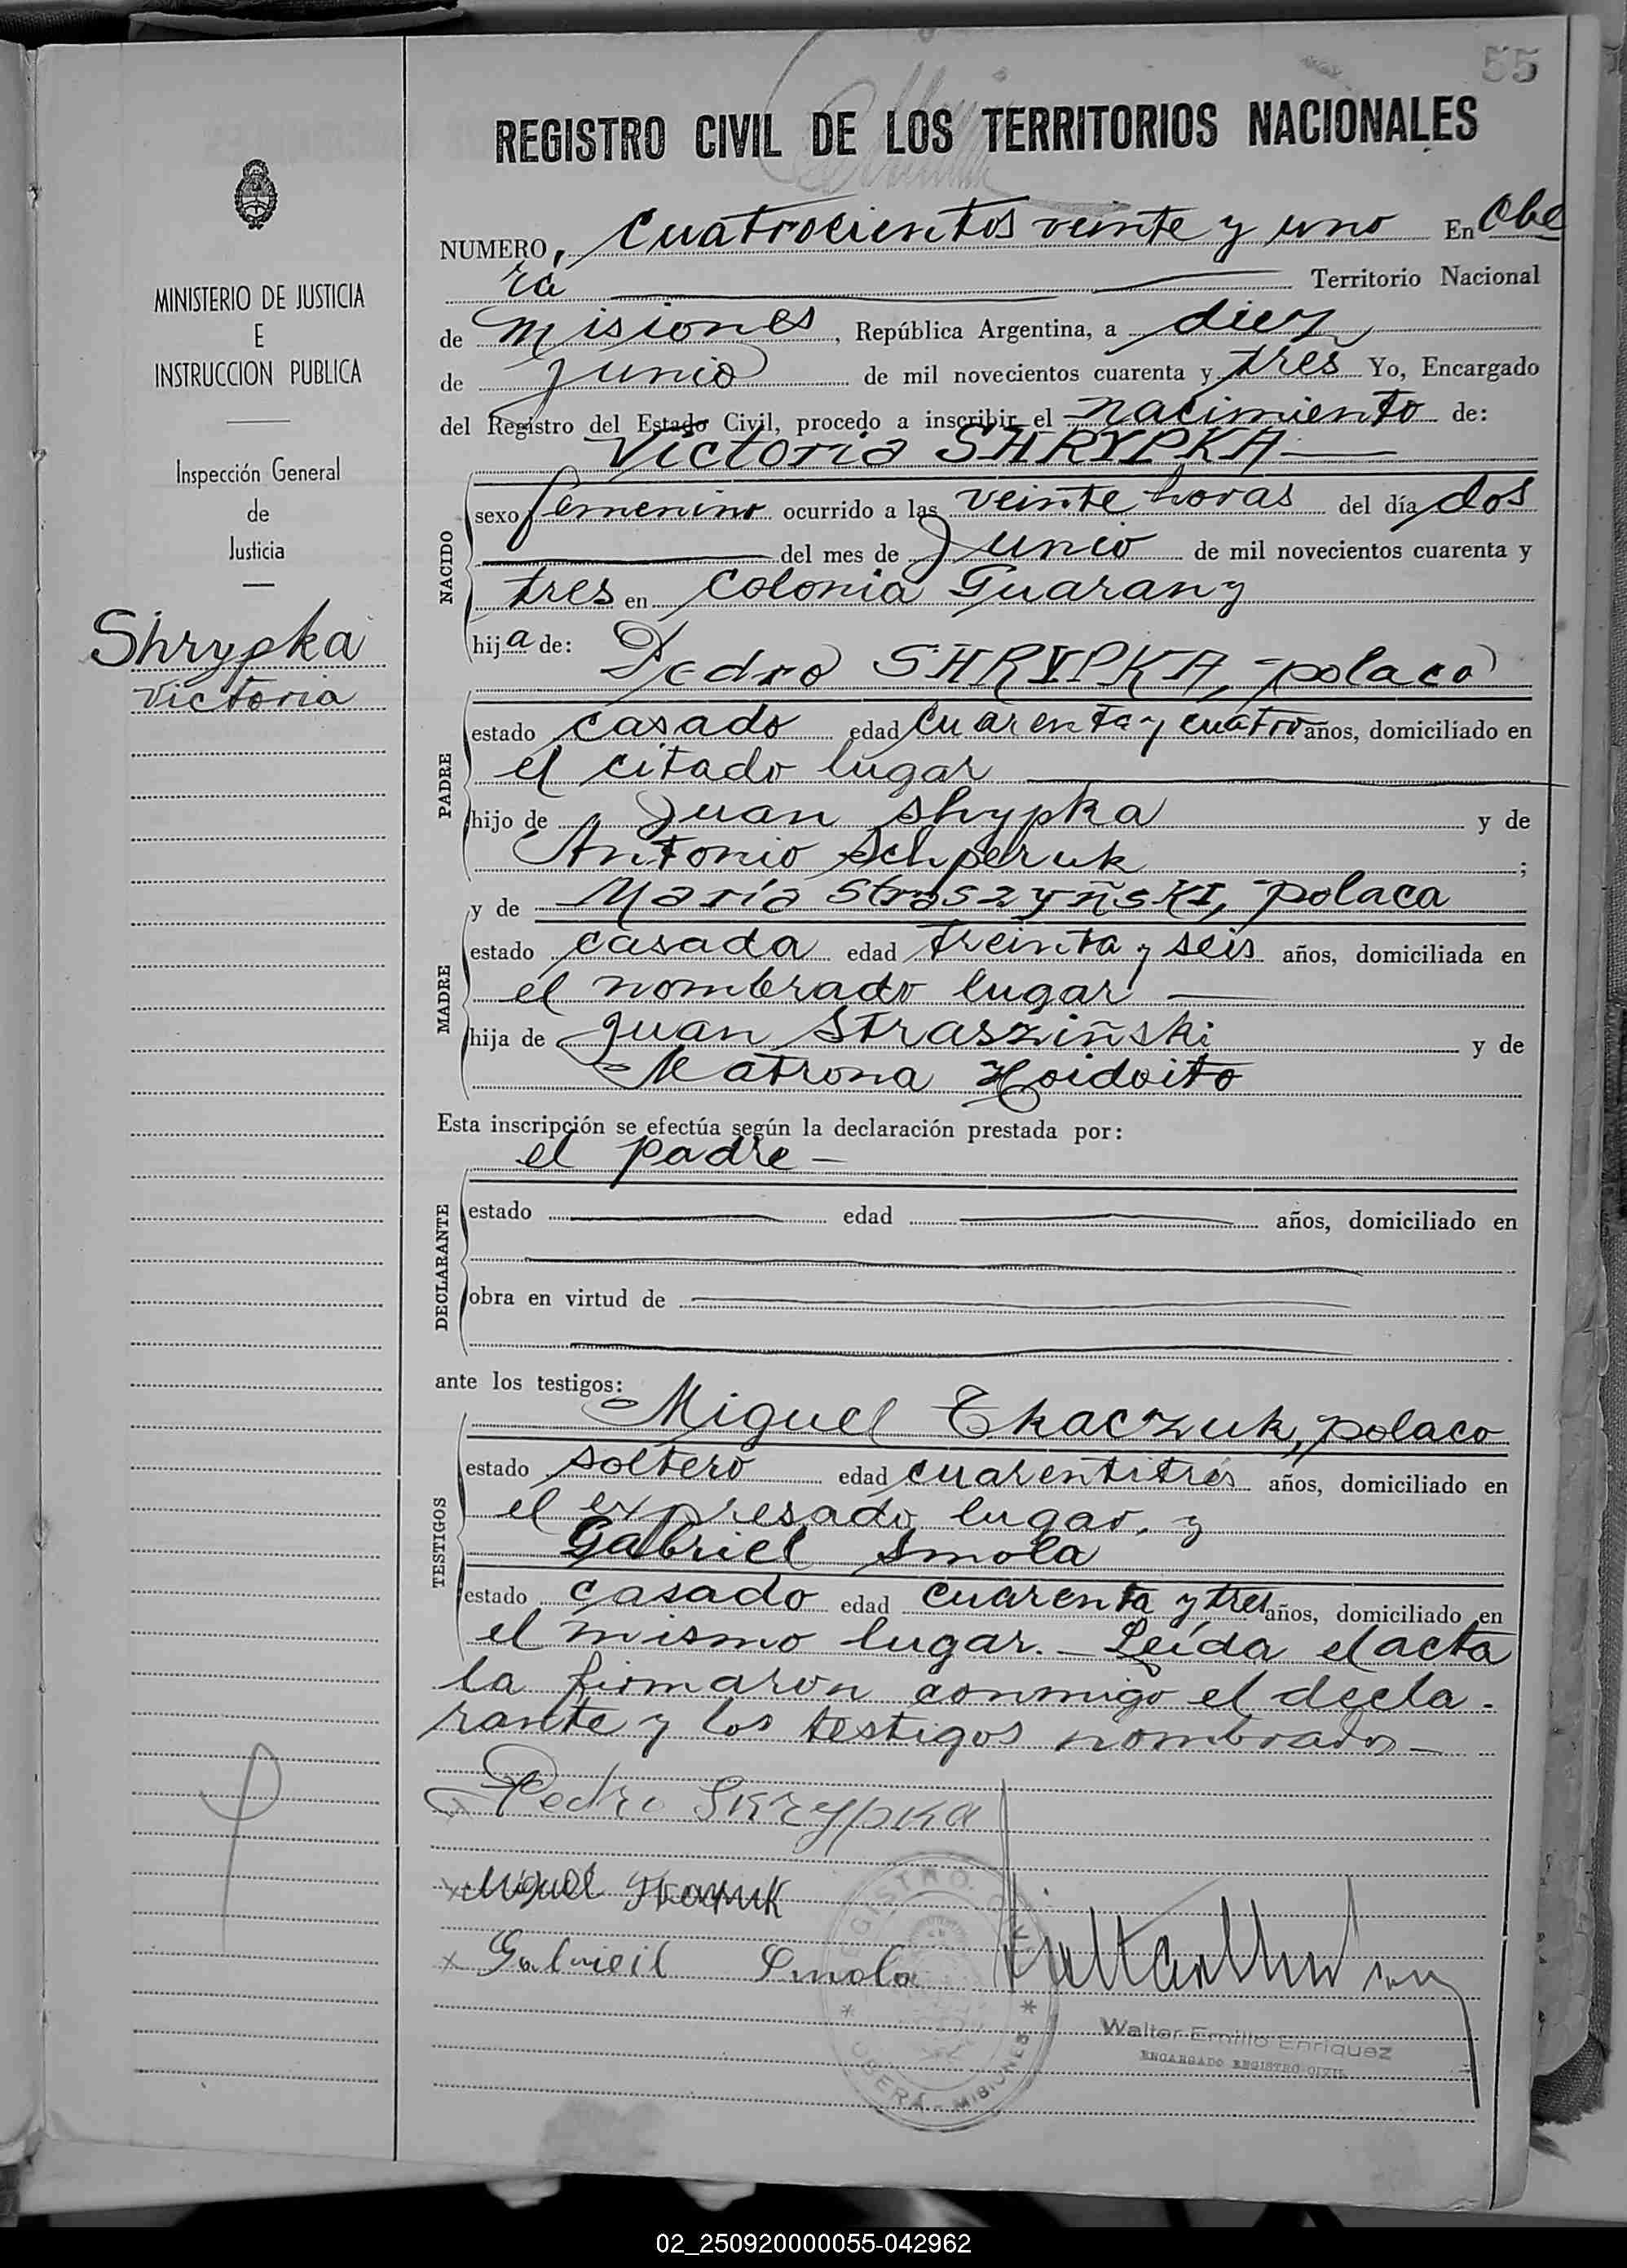 55
REGISTRO CIVIL DE LOS TERRITORIOS NACIONALES
MINISTERIO DE JUSTICIA
E
INSTRUCCION PUBLICA
Inspección General
de
Justicia
Shrypka
Victoria
NUMERO, Cuatrocientos veinte y uno En Obe
rá Territorio Nacional
de Misiones, República Argentina, a diez
de Junio de mil novecientos cuarenta y tres Yo, Encargado
del Registro del Estado Civil, procedo a inscribir el nacimiento de:
Victoria SHRYPKA
NACIDO
sexo femenino ocurrido a las veinte horas del día dos
del mes de Junio de mil novecientos cuarenta y
tres en Colonia Guarany
hija de:
Pedro SHRYPKA, polaco
PADRE
estado casado edad cuarenta y cuatro años, domiciliado en
el citado lugar
hijo de Juan Shypka y de
Antonio Schperuk ;
y de María Straszyñski, polaca
MADRE
estado casada edad treinta y seis años, domiciliada en
el nombrado lugar
hija de Juan Strasziñski y de
Matrona Hoidoito
Esta inscripción se efectúa según la declaración prestada por:
el padre
DECLARANTE
estado edad años, domiciliado en
obra en virtud de
ante los testigos:
Miguel Tkaczuk, polaco
TESTIGOS
estado soltero edad cuarentitrés años, domiciliado en
el expresado lugar, y
Gabriel Smola
estado casado edad cuarenta y tres años, domiciliado en
el mismo lugar. - Leída el acta
la firmaron conmigo el decla-
rante y los testigos nombrados
Pedro Skrypka
x Miguel
x Gabrieil Smola
REGISTRO CIVIL
* OBERÁ - MISIONES *
Walter Emilio Enriquez
ENCARGADO REGISTRO CIVIL
02_250920000055-042962